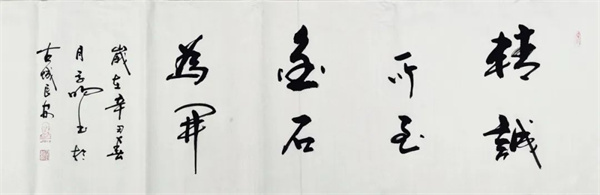 精誠
所至
金石
為開
歲在辛丑春
月書於
古城長安